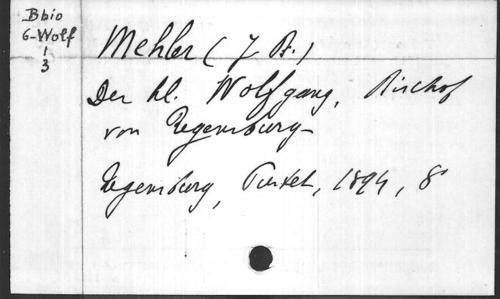 Bbio
G-Wolf
1
3
Mehler (J. B.)
Der hl. Wolfgang, Bischof
von Regensburg-
Regensburg, Pustet, 1894, 8°